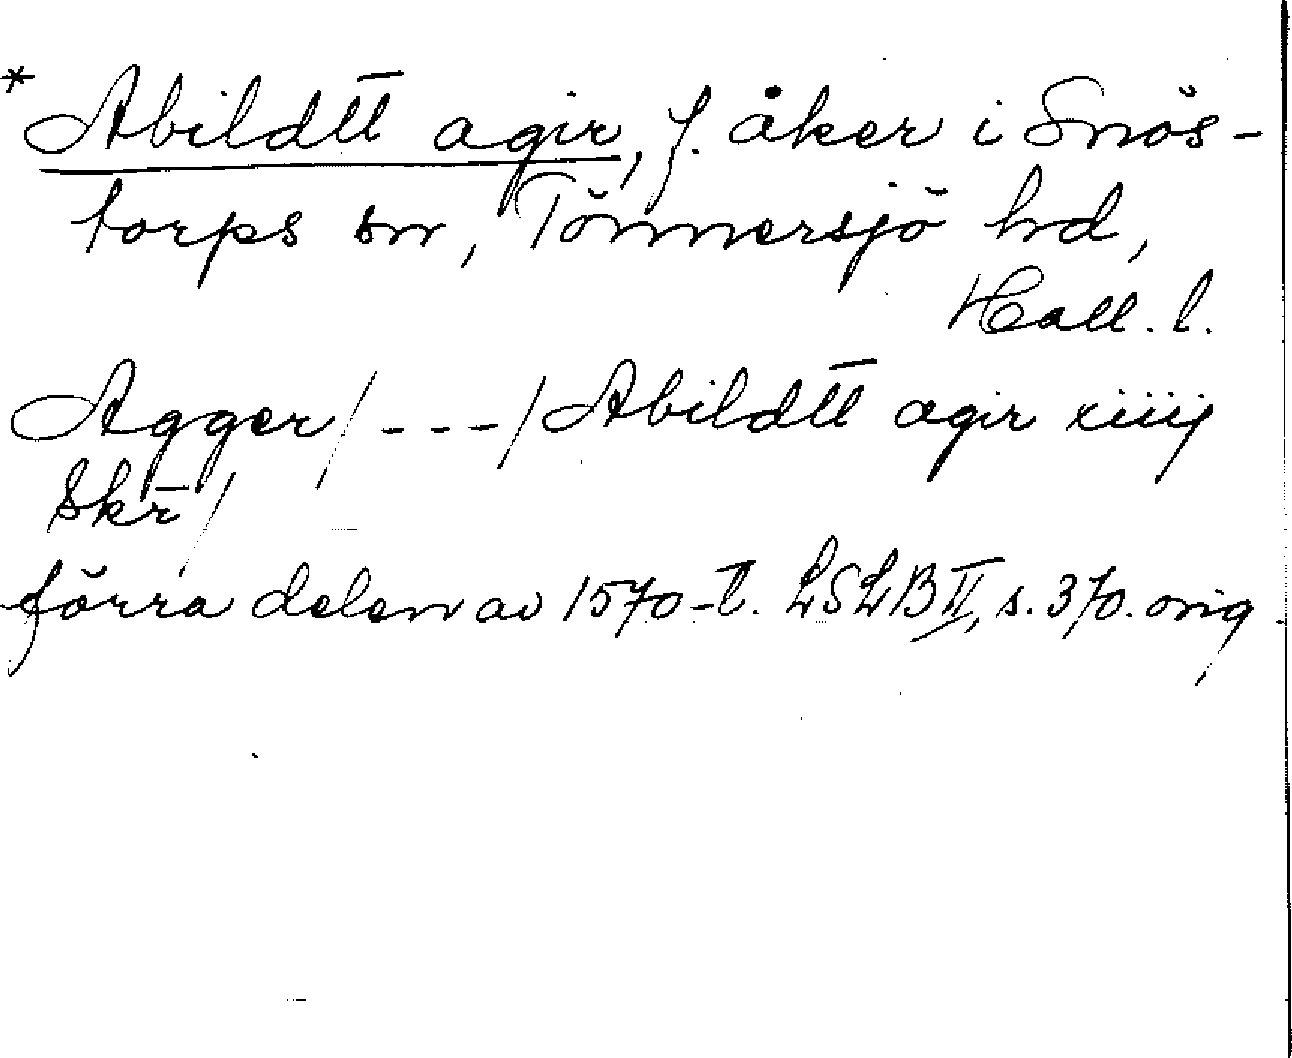 * Abildtt agir, f. åker i Snös-
torps sn, Tönnersjö hd,
Hall. l.
Agger/---/Abildtt agir xiiij
Skr̄/
förra delen av 1570-t. LSLB II, s. 370. orig